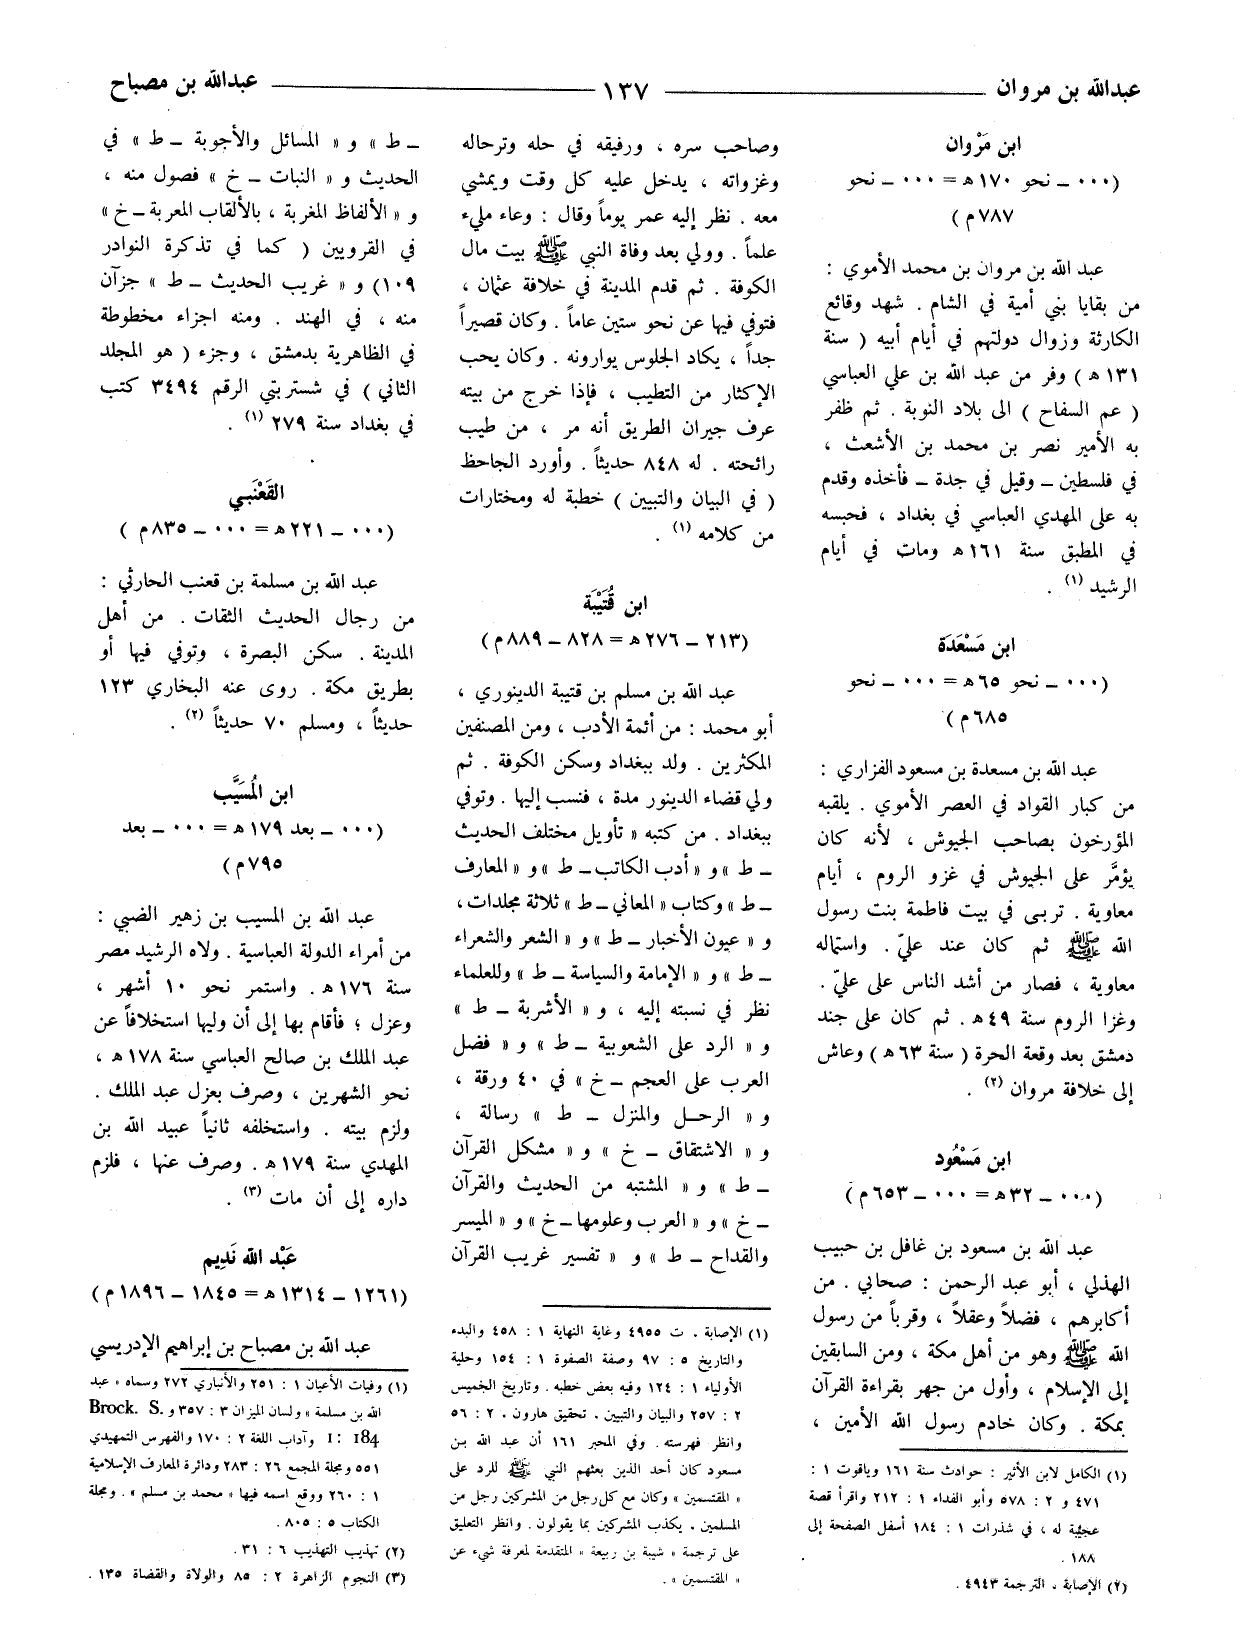 عبدالله بن مروان ١٣٧ عبدالله بن مصباح
ابن مَرْوان
(٠٠٠ ـ نحو ١٧٠ ه = ٠٠٠ ـ نحو
٧٨٧ م)
عبد الله بن مروان بن محمد الأموي :
من بقايا بني أمية في الشام . شهد وقائع
الكارثة وزوال دولتهم في أيام أبيه ( سنة
١٣١ ه ) وفر من عبد الله بن علي العباسي
( عم السفاح ) الى بلاد النوبة . ثم ظفر
به الأمير نصر بن محمد بن الأشعث ،
في فلسطين ـ وقيل في جدة ـ فأخذه وقدم
به على المهدي العباسي في بغداد ، فحبسه
في المطبق سنة ١٦١ ه ومات في أيام
الرشيد (١) .
ابن مَسْعَدَة
(٠٠٠ ـ نحو ٦٥ ه = ٠٠٠ ـ نحو
٦٨٥ م)
عبد الله بن مسعدة بن مسعود الفزاري :
من كبار القواد في العصر الأموي . يلقبه
المؤرخون بصاحب الجيوش ، لأنه كان
يؤمَّر على الجيوش في غزو الروم ، أيام
معاوية . تربى في بيت فاطمة بنت رسول
الله ﷺ ثم كان عند عليّ . واستماله
معاوية ، فصار من أشد الناس على عليّ .
وغزا الروم سنة ٤٩ ه . ثم كان على جند
دمشق بعد وقعة الحرة ( سنة ٦٣ ه ) وعاش
إلى خلافة مروان (٢) .
ابن مَسْعُود
(٠٠٠ ـ ٣٢ ه = ٠٠٠ ـ ٦٥٣ م)
عبد الله بن مسعود بن غافل بن حبيب
الهذلي ، أبو عبد الرحمن : صحابي . من
أكابرهم ، فضلاً وعقلاً ، وقرباً من رسول
الله ﷺ وهو من أهل مكة ، ومن السابقين
إلى الإسلام ، وأول من جهر بقراءة القرآن
بمكة . وكان خادم رسول الله الأمين ،
(١) الكامل لابن الأثير : حوادث سنة ١٦١ وياقوت ١ :
٤٧١ و ٢ : ٥٧٨ وأبو الفداء ١ : ٢١٢ واقرأ قصة
عجيبة له ، في شذرات ١ : ١٨٤ أسفل الصفحة إلى
١٨٨ .
(٢) الإصابة ، الترجمة ٤٩٤٣ .
وصاحب سره ، ورفيقه في حله وترحاله
وغزواته ، يدخل عليه كل وقت ويمشي
معه . نظر إليه عمر يوماً وقال : وعاء مليء
علماً . وولي بعد وفاة النبي ﷺ بيت مال
الكوفة . ثم قدم المدينة في خلافة عثمان ،
فتوفي فيها عن نحو ستين عاماً . وكان قصيراً
جداً ، يكاد الجلوس يوارونه . وكان يحب
الإكثار من التطيب ، فإذا خرج من بيته
عرف جيران الطريق أنه مر ، من طيب
رائحته . له ٨٤٨ حديثاً . وأورد الجاحظ
( في البيان والتبيين ) خطبة له ومختارات
من كلامه (١) .
ابن قُتَيْبَة
(٢١٣ ـ ٢٧٦ ه = ٨٢٨ ـ ٨٨٩ م)
عبد الله بن مسلم بن قتيبة الدينوري ،
أبو محمد : من أئمة الأدب ، ومن المصنفين
المكثرين . ولد ببغداد وسكن الكوفة . ثم
ولي قضاء الدينور مدة ، فنسب إليها . وتوفي
ببغداد . من كتبه « تأويل مختلف الحديث
ـ ط » و « أدب الكاتب ـ ط » و « المعارف
ـ ط » وكتاب « المعاني ـ ط » ثلاثة مجلدات ،
و « عيون الأخبار ـ ط » و « الشعر والشعراء
ـ ط » و « الإمامة والسياسة ـ ط » وللعلماء
نظر في نسبته إليه ، و « الأشربة ـ ط »
و « الرد على الشعوبية ـ ط » و « فضل
العرب على العجم ـ خ » في ٤٠ ورقة ،
و « الرحـل والمنزل ـ ط » رسالة ،
و « الاشتقاق ـ خ » و « مشكل القرآن
ـ ط » و « المشتبه من الحديث والقرآن
ـ خ » و « العرب وعلومها ـ خ » و « الميسر
والقداح ـ ط » و « تفسير غريب القرآن
(١) الإصابة ، ت ٤٩٥٥ وغاية النهاية ١ : ٤٥٨ والبدء
والتاريخ ٥ : ٩٧ وصفة الصفوة ١ : ١٥٤ وحلية
الأولياء ١ : ١٢٤ وفيه بعض خطبه . وتاريخ الخميس
٢ : ٢٥٧ والبيان والتبيين ، تحقيق هارون ، ٢ : ٥٦
وانظر فهرسته . وفي المحبر ١٦١ أن عبد الله بن
مسعود كان أحد الذين بعثهم النبي ﷺ للرد على
« المقتسمين » وكان مع كل رجل من المشركين رجل من
المسلمين ، يكذب المشركين بما يقولون . وانظر التعليق
على ترجمة « شيبة بن ربيعة » المتقدمة لمعرفة شيء عن
« المقتسمين » .
ـ ط » و « المسائل والأجوبة ـ ط » في
الحديث و « النبات ـ خ » فصول منه ،
و « الألفاظ المغربة ، بالألقاب المعربة ـ خ »
في القرويين ( كما في تذكرة النوادر
١٠٩) و « غريب الحديث ـ ط » جزآن
منه ، في الهند . ومنه اجزاء مخطوطة
في الظاهرية بدمشق ، وجزء ( هو المجلد
الثاني ) في شستربتي الرقم ٣٤٩٤ كتب
في بغداد سنة ٢٧٩ (١) .
القَعْنَبي
(٠٠٠ ـ ٢٢١ ه = ٠٠٠ ـ ٨٣٥ م )
عبد الله بن مسلمة بن قعنب الحارثي :
من رجال الحديث الثقات . من أهل
المدينة . سكن البصرة ، وتوفي فيها أو
بطريق مكة . روى عنه البخاري ١٢٣
حديثاً ، ومسلم ٧٠ حديثاً (٢) .
ابن المُسَيَّب
(٠٠٠ ـ بعد ١٧٩ ه = ٠٠٠ ـ بعد
٧٩٥ م)
عبد الله بن المسيب بن زهير الضبي :
من أمراء الدولة العباسية . ولاه الرشيد مصر
سنة ١٧٦ ه . واستمر نحو ١٠ أشهر ،
وعزل ؛ فأقام بها إلى أن وليها استخلافاً عن
عبد الملك بن صالح العباسي سنة ١٧٨ ه ،
نحو الشهرين ، وصرف بعزل عبد الملك .
ولزم بيته . واستخلفه ثانياً عبيد الله بن
المهدي سنة ١٧٩ ه . وصرف عنها ، فلزم
داره إلى أن مات (٣) .
عَبْد الله نَدِيم
(١٢٦١ ـ ١٣١٤ ه = ١٨٤٥ ـ ١٨٩٦ م )
عبد الله بن مصباح بن إبراهيم الإدريسي
(١) وفيات الأعيان ١ : ٢٥١ والأنباري ٢٧٢ وسماه « عبد
الله بن مسلمة » ولسان الميزان ٣ : ٣٥٧ و Brock. S.
I: 184 وآداب اللغة ٢ : ١٧٠ والفهرس التمهيدي
٥٥١ ومجلة المجمع ٢٦ : ٢٨٣ ودائرة المعارف الإسلامية
١ : ٢٦٠ ووقع اسمه فيها « محمد بن مسلم » . ومجلة
الكتاب ٥ : ٨٠٥ .
(٢) تهذيب التهذيب ٦ : ٣١ .
(٣) النجوم الزاهرة ٢ : ٨٥ والولاة والقضاة ١٣٥ .